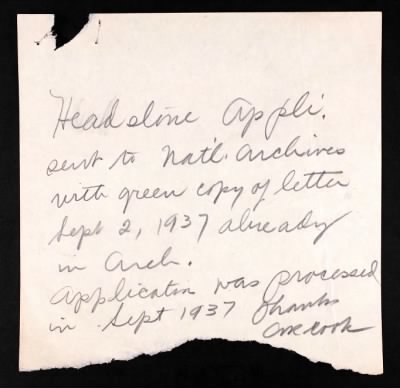 Headstone Appli.
sent to Nat'l. Archives
with green copy of letter
Sept 2, 1937 already
in Arch.
Application was processed
in Sept 1937 Thanks